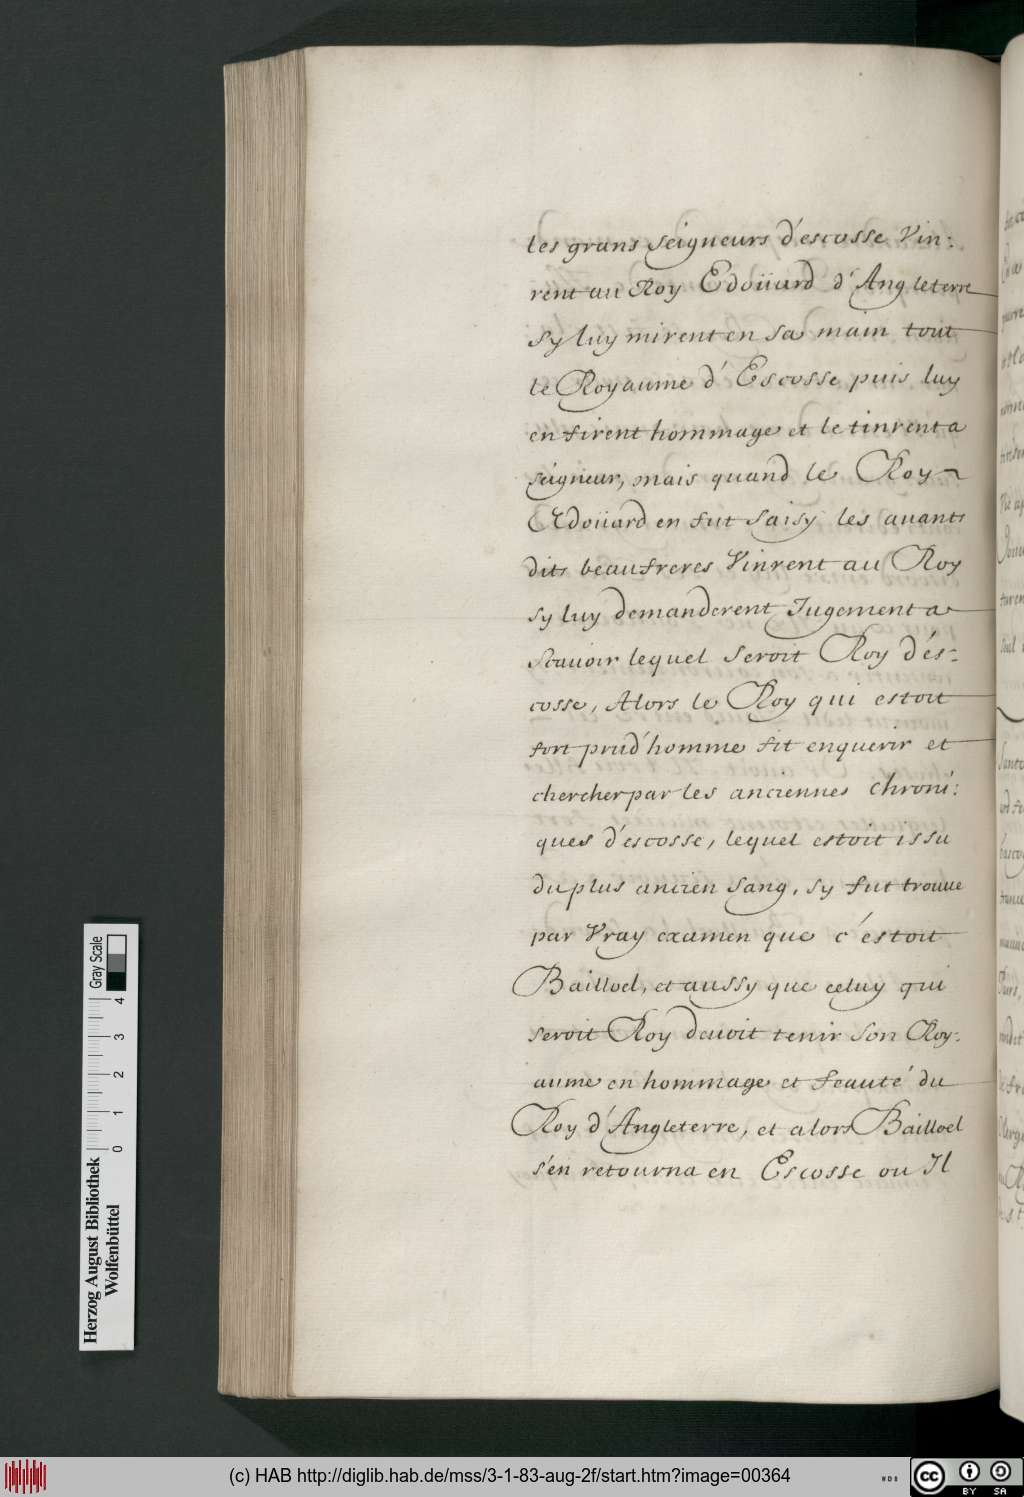 les grans seigneurs d'escosse Vin:
rent au Roy Edoüard d'Angleterre
sy luy mirent en sa main tout
le Royaume d'Escosse puis luy
en firent hommage et le tinrent a
seigneur, mais quand le Roy
Edoüard en fut saisy les auants
dits beaufreres Vinrent au Roy
sy luy demanderent Jugement a
scauoir lequel seroit Roy d'és-
cosse, Alors le Roy qui estoit
fort prud'homme fit enquerir et
chercher par les anciennes chroni:
ques d'escosse, lequel estoit issu
du plus ancien sang, sy fut trouue
par Vray examen que c'estoit
Bailloel, et aussy que celuy qui
seroit Roy deuoit tenir son Roy:
aume en hommage et feauté du
Roy d'Angleterre, et alors Bailloel
s'en retourna en Escosse ou Il
Herzog August Bibliothek
Wolfenbüttel
0 1 2 3 4
Gray Scale
(c) HAB http://diglib.hab.de/mss/3-1-83-aug-2f/start.htm?image=00364
cc BY SA